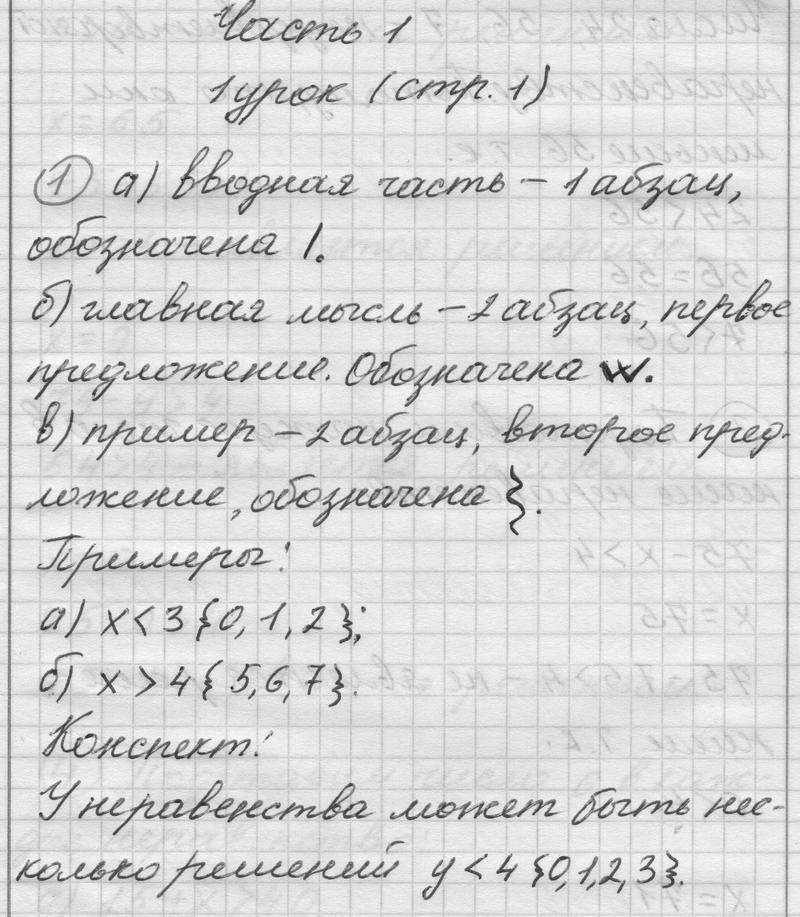 Часть 1
1 урок (стр. 1)
1 а) вводная часть – 1 абзац,
обозначена /.
б) главная мысль – 2 абзац, первое
предложение. Обозначена w.
в) пример – 2 абзац, второе пред-
ложение, обозначена }.
Примеры:
а) x < 3 {0, 1, 2};
б) x > 4 { 5, 6, 7}.
Конспект:
У неравенства может быть нес-
колько решений y < 4 {0,1,2,3}.